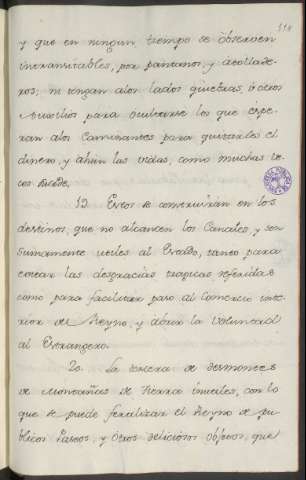 y que en ningun tiempo se observen
intransitables, por pantanos, y atollade-
ros; ni tengan alos lados quiebras, ù otros
Auxilios para ocultarse los que espe-
ran alos Caminantes para quitarles el
dinero, y ahùn las vidas, como muchas ve-
ces sucede.
19. Estos se construirán en los
destinos, que no alcancen los Canales, y son
sumamente utiles al Estado, tanto para
evitar las desgracias tragicas referidas
como para facilitar paso al Comercio inte-
rior del Reyno, y atraer la voluntad
al Estrangero.
20. La tercera de desmontes
de Montañas de tierra inutiles, con lo
que se puede feralizar el Reyno de pu-
blicos Paseos, y otros deliciosos objetos, que